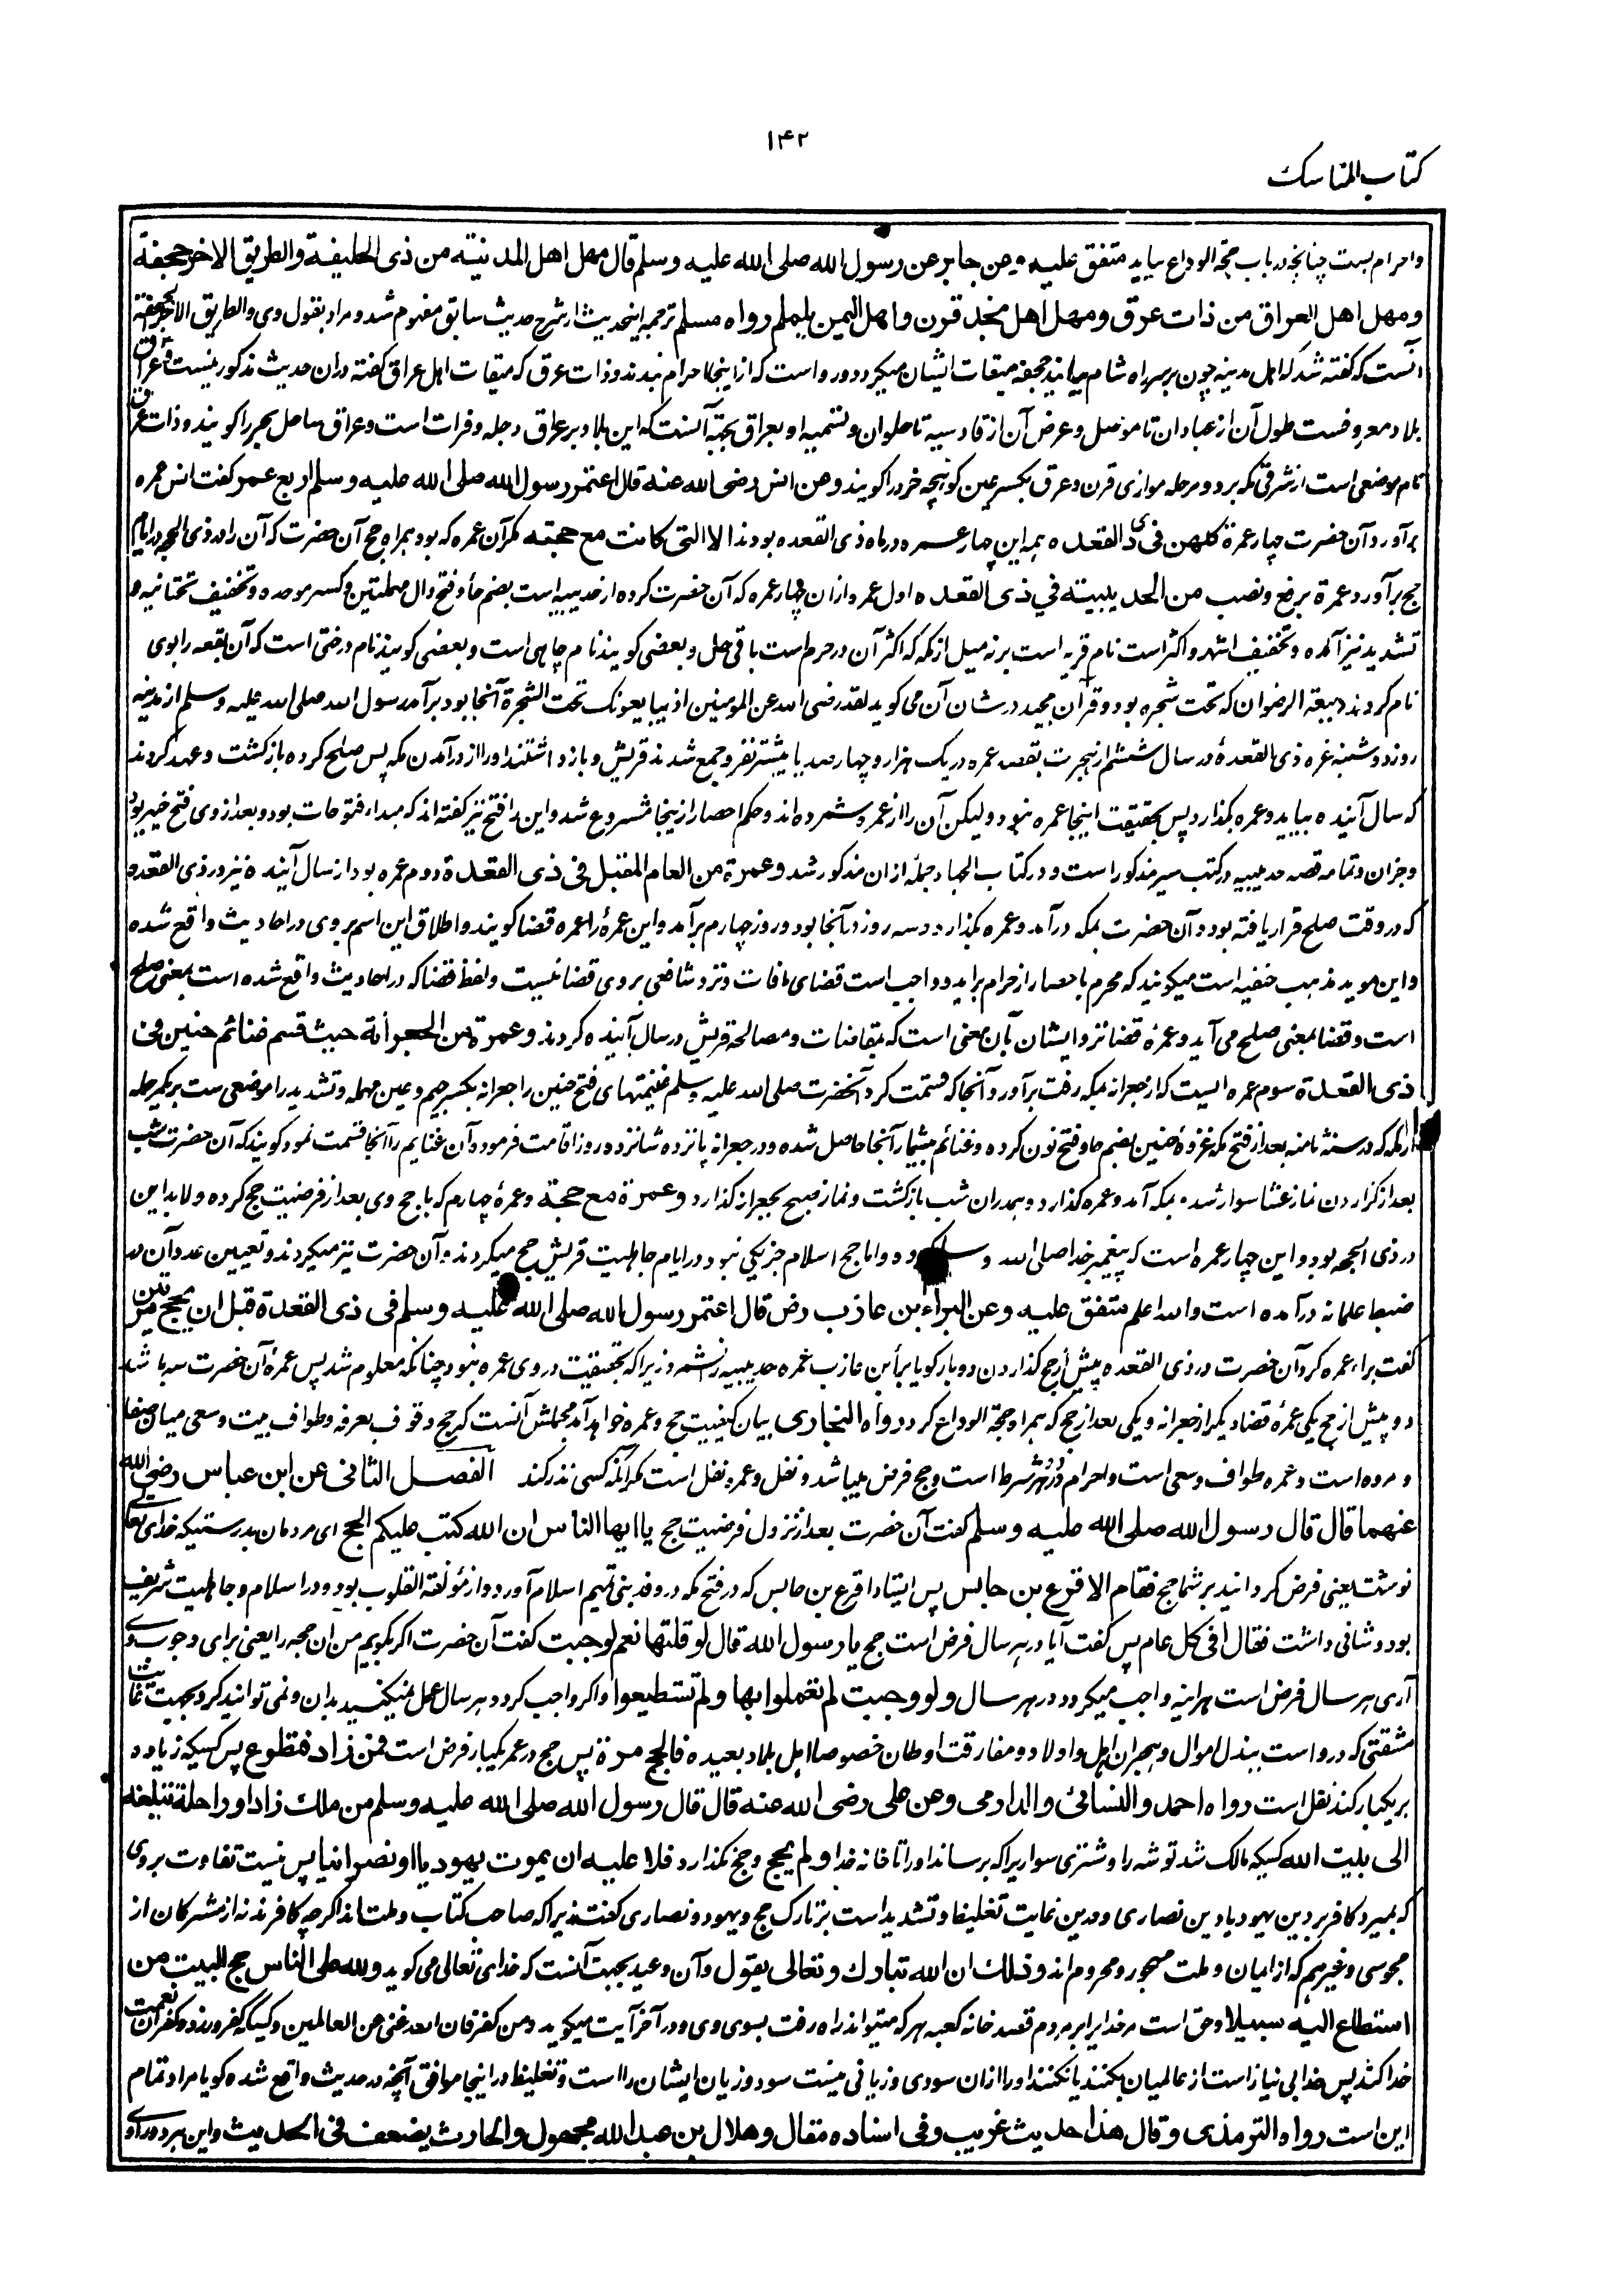 ۱۴۲
کتاب المناسک
واحرام بست چنانچه در باب حجة الوداع بیاید متفق علیه وعن جابر عن رسول الله صلی الله علیه وسلم قال مهل اهل المدینة من ذی الحلیفة والطریق الاخر جحفة
ومهل اهل العراق من ذات عرق ومهل اهل نجد قرن واهل الیمن یلملم رواه مسلم ترجمه اینحدیث از شرح حدیث سابق مفهوم شد ومراد بقول وی والطریق الاخر جحفة
آنست که گفته شد که اهل مدینه چون بر سر راه شام بیایند جحفه میقات ایشان میگردد ورواست که از اینجا احرام نبندند وذات عرق که میقات اهل عراق گفته دران حدیث مذکور نیست وعراق
بلاد معروفست طول آن از عبادان تا موصل وعرض آن از قادسیه تا حلوان وتسمیه او بعراق بجهة آنست که این بلاد بر عراق دجله وفرات است وعراق ساحل بحر را گویند وذات عرق
نام موضعی است از شرقی مکه بر دو مرحله موازی قرن وعرق بکسر عین کوهچه خرد را گویند وعن انس رضی الله عنه قال اعتمر رسول الله صلی الله علیه وسلم اربع عمر گفت انس عمره
برآورد آن حضرت چهار عمرة کلهن فی ذی القعده همه این چهار عمره در ماه ذی القعده بودند الا التی کانت مع حجته مگر آن عمره که بود همراه حج آن حضرت که آن را در ذی الحجه در ایام
حج برآورد عمرة برفع ونصب من الحدیبیة فی ذی القعده اول عمره ازان چهار عمره که آن حضرت کرده از حدیبیه است بضم حا وفتح دال مهملتین وکسر موحده وتخفیف تحتانیه و
تشدید نیز آمده وتخفیف اشهر واکثر است نام قریه است بر نه میل از مکه که اکثر آن در حرم است باقی حل وبعضی گویند نام چاهی است وبعضی گویند نام درختی است که آن بقعه را بوی
نام کردند وبیعة الرضوان که تحت شجره بود وقرآن مجید در شان آن می گوید لقد رضی الله عن المؤمنین اذ یبایعونک تحت الشجرة آنجا بود برآمد رسول الله صلی الله علیه وسلم از مدینه
روز دوشنبه غره ذی القعدة در سال ششم از هجرت بقصد عمره در یک هزار وچهارصد یا بیشتر نفر وجمع شدند قریش وباز داشتند او را از درآمدن مکه پس صلح کرده بازگشت وعهد کردند
که سال آینده بیاید وعمره بگذارد پس بحقیقت اینجا عمره نبود ولیکن آن را از عمره شمرده اند وحکم احصار از ینجا مشروع شد واین را فتح نیز گفته اند که مبداء فتوحات بود وبعد از وی فتح خیبر بود
وجزان وتمامه قصه حدیبیه در کتب سیر مذکور است ودر کتاب الجهاد جمله ازان مذکور شد وعمرة من العام المقبل فی ذی القعدة دوم عمره بود از سال آینده نیز در ذی القعده
که در وقت صلح قرار یافته بود وآن حضرت بمکه درآمد وعمره بگذارد وسه روز در آنجا بود وروز چهارم برآمد واین عمره را عمره قضا گویند واطلاق این اسم بر وی در احادیث واقع شده
واین موید مذهب حنفیه است میگویند که محرم باحصار از حرام برآید وواجب است قضای مافات ونزد شافعی بر وی قضا نیست ولفظ قضا که در احادیث واقع شده است بمعنی صلح
است وقضا بمعنی صلح می آید وعمرهٔ قضا نزد ایشان بآن معنی است که بمقاضات ومصالحه قریش در سال آینده کردند وعمرة من الجعرانة حیث قسم غنائم حنین فی
ذی القعدة سوم عمره ایست که از جعرانه بمکه رفت برآورد آنجا که قسمت کرد آنحضرت صلی الله علیه وسلم غنیمتهای فتح حنین را جعرانه بکسر جیم وعین مهمله وتشدید را موضعی ست بر یکمرحله
از مکه که در سنهٔ ثامنه بعد از فتح مکه غزوهٔ حنین بضم حا وفتح نون کرده وغنائم بیشمار آنجا حاصل شده ودر جعرانه پانزده شانزده روز اقامت فرمود وآن غنایم را آنجا قسمت نمود گویند که آن حضرت شب
بعد از گزاردن نماز عشا سوار شد بمکه آمد وعمره گذارد وهمدران شب بازگشت ونماز صبح بجعرانه گذارد وعمرة مع حجة وعمرهٔ چهارم که با حج وی بعد از فرضیت حج کرده ولابد این
در ذی الحجه بود واین چهار عمره است که پیغمبر خدا صلی الله وسلم وده واما حج اسلام جز یکی نبود در ایام جاهلیت قریش حج میکردند وآن حضرت نیز میکردند وتعیین عدد آن در
ضبط علما نه درآمده است والله اعلم متفق علیه وعن البراء بن عازب رض قال اعتمر رسول الله صلی الله علیه وسلم فی ذی القعدة قبل ان یحج مرتین
گفت براء عمره کرد آن حضرت در ذی القعده پیش از حج گذاردن دو بار گویا براء بن عازب عمره حدیبیه را نشمرد زیرا که بحقیقت در وی عمره نبود چنانکه معلوم شد پس عمرهٔ آن حضرت سه باشد
دو پیش از حج یکی عمرهٔ قضا دیگر از جعرانه ویکی بعد از حج که همراه حجة الوداع کرد رواه البخاری بیان کیفیت حج وعمره خواهد آمد مجملش آنست که حج وقوف بعرفه وطواف بیت وسعی میان صفا
ومروه است وعمره طواف وسعی است واحرام در هر دو شرط است وحج فرض میباشد ونفل وعمره نفل است مگر آنکه کسی نذر کند الفصل الثانی عن ابن عباس رضی الله
عنهما قال قال رسول الله صلی الله علیه وسلم گفت آن حضرت بعد از نزول فرضیت حج یا ایها الناس ان الله کتب علیکم الحج ای مردمان بدرستیکه خدای تعالی
نوشت یعنی فرض گردانید بر شما حج فقام الاقرع بن حابس پس ایستاد اقرع بن حابس که در فتح مکه در وفد بنی تمیم اسلام آورد واز مؤلفة القلوب بود ودر اسلام وجاهلیت شریف
بود وشانی داشت فقال افی کل عام پس گفت آیا در هر سال فرض است حج یا رسول الله قال لو قلتها نعم لوجبت گفت آن حضرت اگر بگویم من ان حجه را یعنی برای وجوب وی
آری هر سال فرض است هراینه واجب میگردد در هر سال ولو وجبت لم تعملوا بها ولم تستطیعوا واگر واجب گردد هر سال عمل نمیکنید بدان ونمی توانید کرد بجهت غایت
مشقتی که در واست ببذل اموال وهجران اهل واولاد ومفارقت اوطان خصوصا اهل بلاد بعیده فالحج مرة پس حج در عمر یکبار فرض است فمن زاد فتطوع پس کسیکه زیاده
بر یکبار کند نفل است رواه احمد والنسائی والدارمی وعن علی رضی الله عنه قال قال رسول الله صلی الله علیه وسلم من ملک زادا وراحلة تبلغه
الی بیت الله کسیکه مالک شد توشه را وشتری سواریرا که برساند او را تا خانه خدا ولم یحج وحج نگذارد فلا علیه ان یموت یهودیا او نصرانیا پس نیست تفاوت بر وی
که بمیرد کافر بر دین یهود یا دین نصاری ودرین غایت تغلیظ وتشدید است بر تارک حج ویهود ونصاری گفت زیرا که صاحب کتاب وملت اند اگرچه کافرند نه از مشرکان از
مجوسی وغیرهم که از ایمان وملت مهجور ومحروم اند وذلک ان الله تبارک وتعالی یقول وآن وعید بجهت آنست که خدای تعالی می گوید ولله علی الناس حج البیت من
استطاع الیه سبیلا وحق است مر خدایرا بر مردم قصد خانه کعبه هر که میتواند راه رفت بسوی وی ودر آخر آیت میگوید ومن کفر فان الله غنی عن العالمین وکسیکه کفر ورزد وکفران نعمت
خدا کند پس خدا بی نیاز است از عالمیان بکنند یا نکنند او را ازان سودی وزیانی نیست سود وزیان ایشان را است وتغلیظ در اینجا موافق آنچه در حدیث واقع شده گویا مراد تمام
این است رواه الترمذی وقال هذا حدیث غریب وفی اسناده مقال وهلال بن عبد الله مجهول والحارث یضعف فی الحدیث واین هر دو راوی